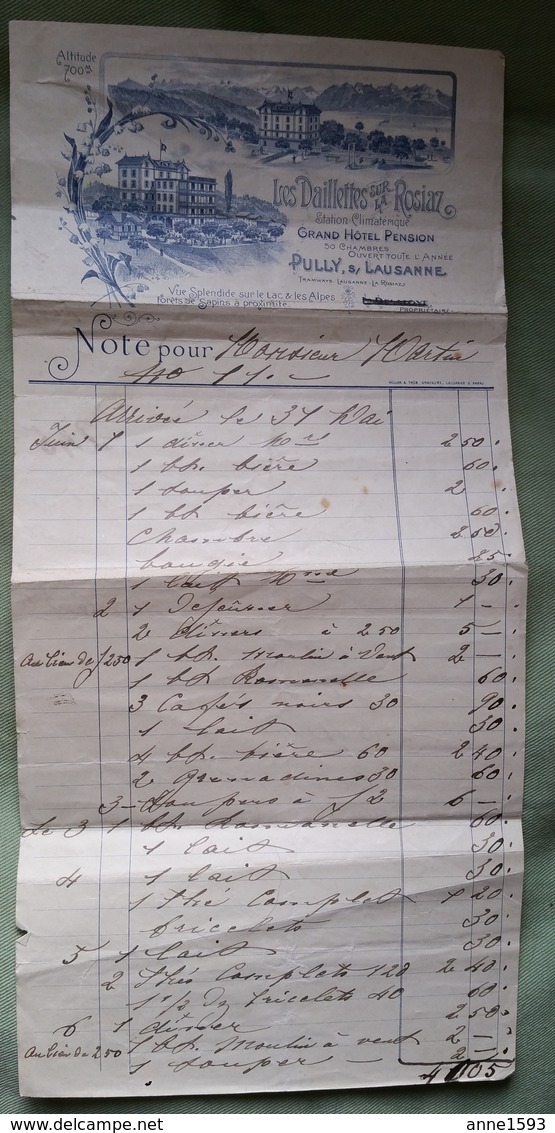 Altitude
700 m
Les Daillettes sur la Rosiaz
Station Climatérique
Grand Hôtel Pension
50 Chambres
Ouvert toute l'Année
Pully, s/ Lausanne
Tramways Lausanne-La Rosiaz
Vue Splendide sur le Lac & les Alpes
Forêts de Sapins à proximité
Propriétaire
Note pour Monsieur Martin
Arrivée le 31 Mai
Juin 1 1 dîner Mr 2 50
1 bt. bière 60
1 souper 2
1 bt bière 60
Chambre 2 50
bougie 25
1 lait Mme 30
2 1 Déjeuner 1 —
2 dîners à 2 50 5 —
au lieu de f 2 50 1 bt. Moulin à Vent 2 —
1 bt Romanelle 60
3 Cafés noirs 30 90
1 lait 30
4 bt. bière 60 2 40
2 Grenadines 30 60
3 — Soupers à f 2 6 —
Le 3 1 bt. Romanelle 60
1 lait 30
4 1 lait 30
1 thé Complet 1 20
bricelets 30
5 1 lait 30
2 thés Complets 120 2 40
1 1/2 Dz bricelets 40 60
6 1 dîner 2 50
au lieu de 2 50 1 bt. Moulin à vent 2 —
1 souper — 2 —
41 05
anne1593